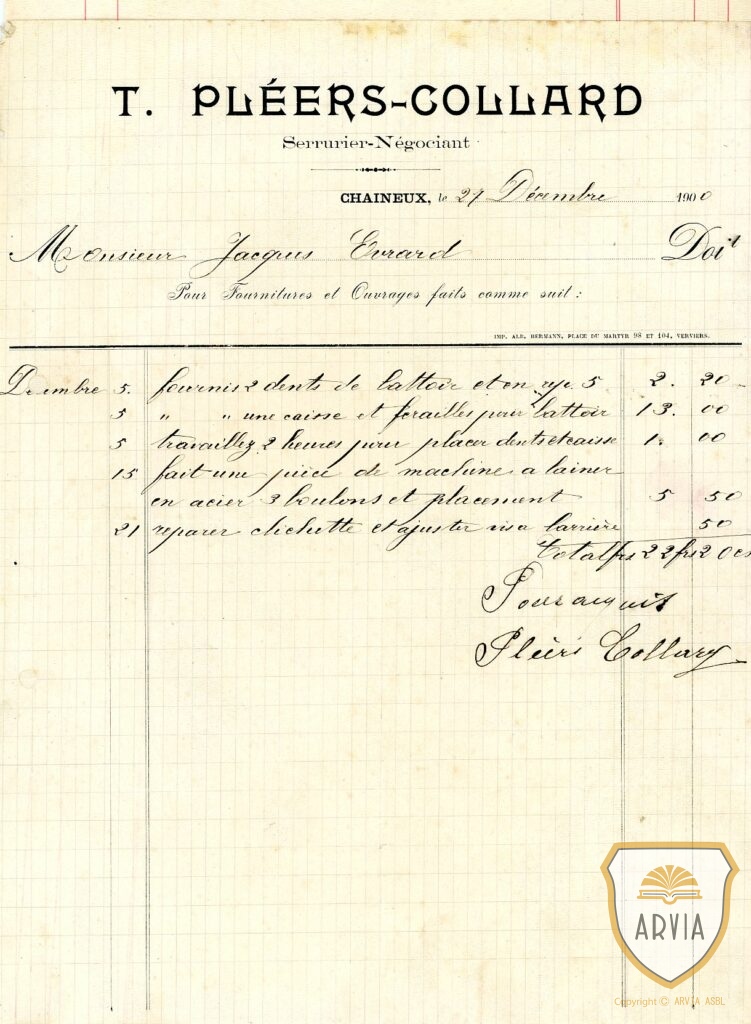 T. PLÉERS-COLLARD
Serrurier-Négociant
CHAINEUX, le 27 Décembre 1900
Monsieur Jacques Evrard Doit
Pour Fournitures et Ouvrages faits comme suit :
IMP. ALB. HERMANN, PLACE DU MARTYR 98 ET 104, VERVIERS.
Décembre 5. fournis 2 dents de battoir et en 5 2. 20
5 " " une caisse et ferailles pour battoir 13. 00
5 travaillez 2 heures pour placer dents et caisse 1. 00
15 fait une pièce de machine a lainer
en acier 3 boulons et placement 5 50
21 reparer clichette et ajuster vis a barrière 50
Total frs 22 frs 20 cs
Pour acquit
Pléèrs Collard
ARVIA
Copyright © ARVIA ASBL